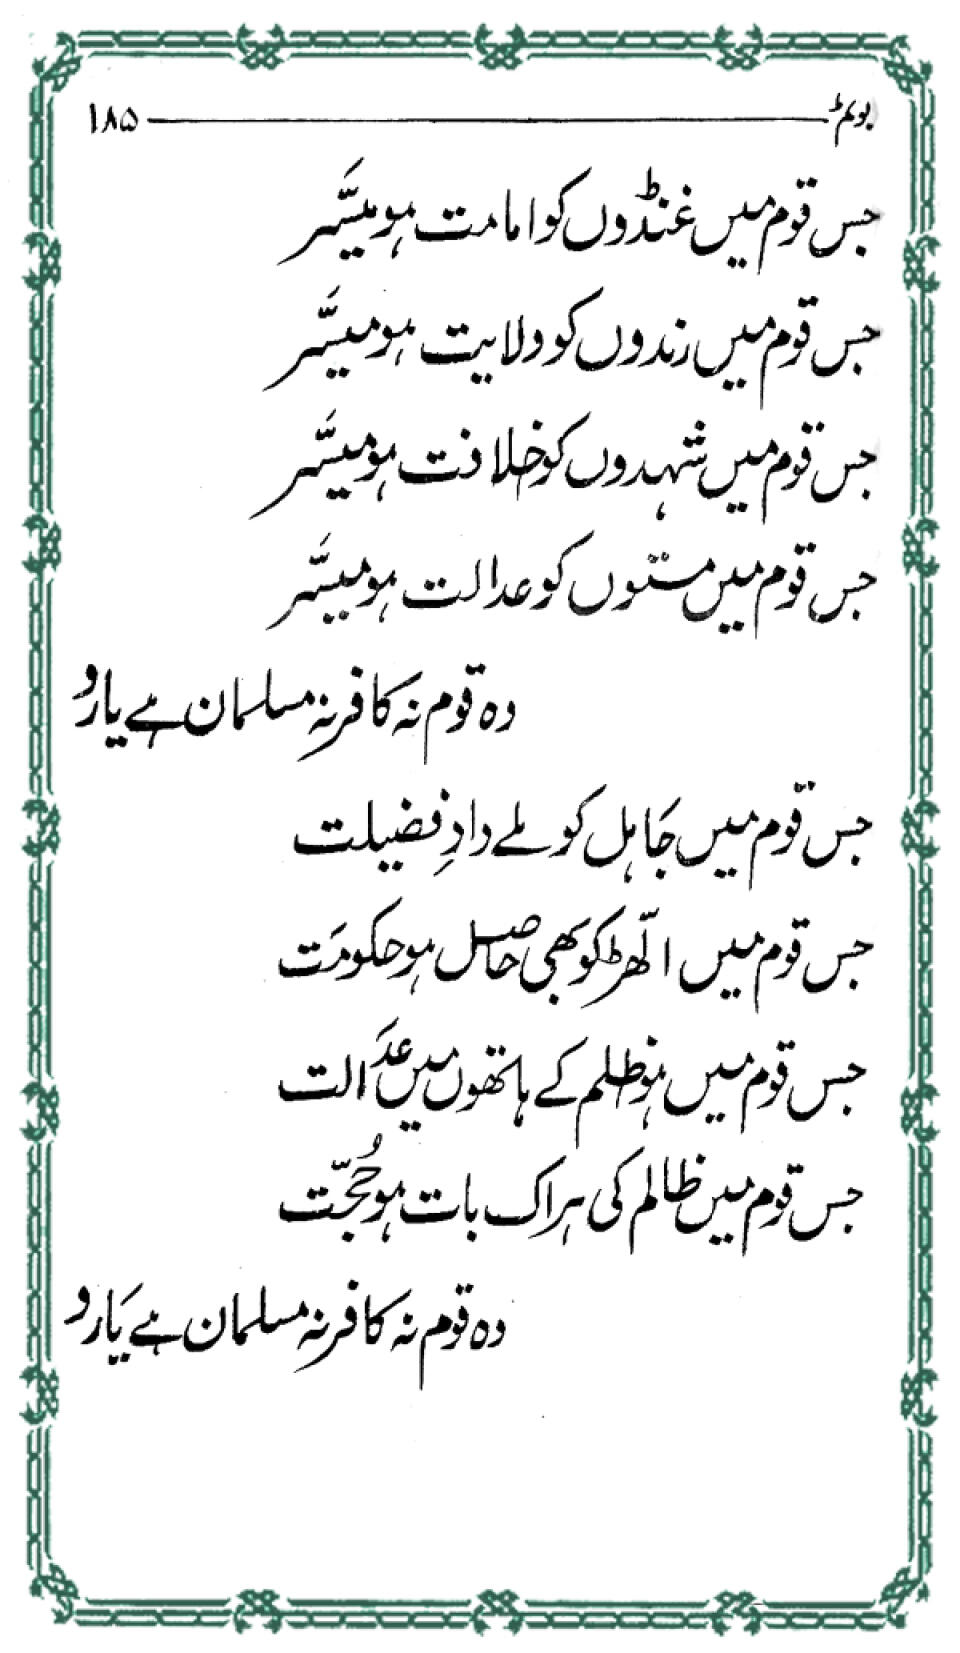 ۱۸۵
جس قوم میں غنڈوں کو امامت ہو میسَّر
جس قوم میں رندوں کو ولایت ہو میسَّر
جس قوم میں شہدوں کو خلافت ہو میسَّر
جس قوم میں مستوں کو عدالت ہو میسَّر
وہ قوم نہ کافر نہ مسلمان ہے یارو
جس قوم میں جَاہل کو ملے دادِ فضیلت
جس قوم میں الّھڑ کو بھی حاصل ہو حکومَت
جس قوم میں ہو ظلم کے ہاتھوں میں عدَالت
جس قوم میں ظالم کی ہر اک بات ہو حُجّت
وہ قوم نہ کافر نہ مسلمان ہے یَارو